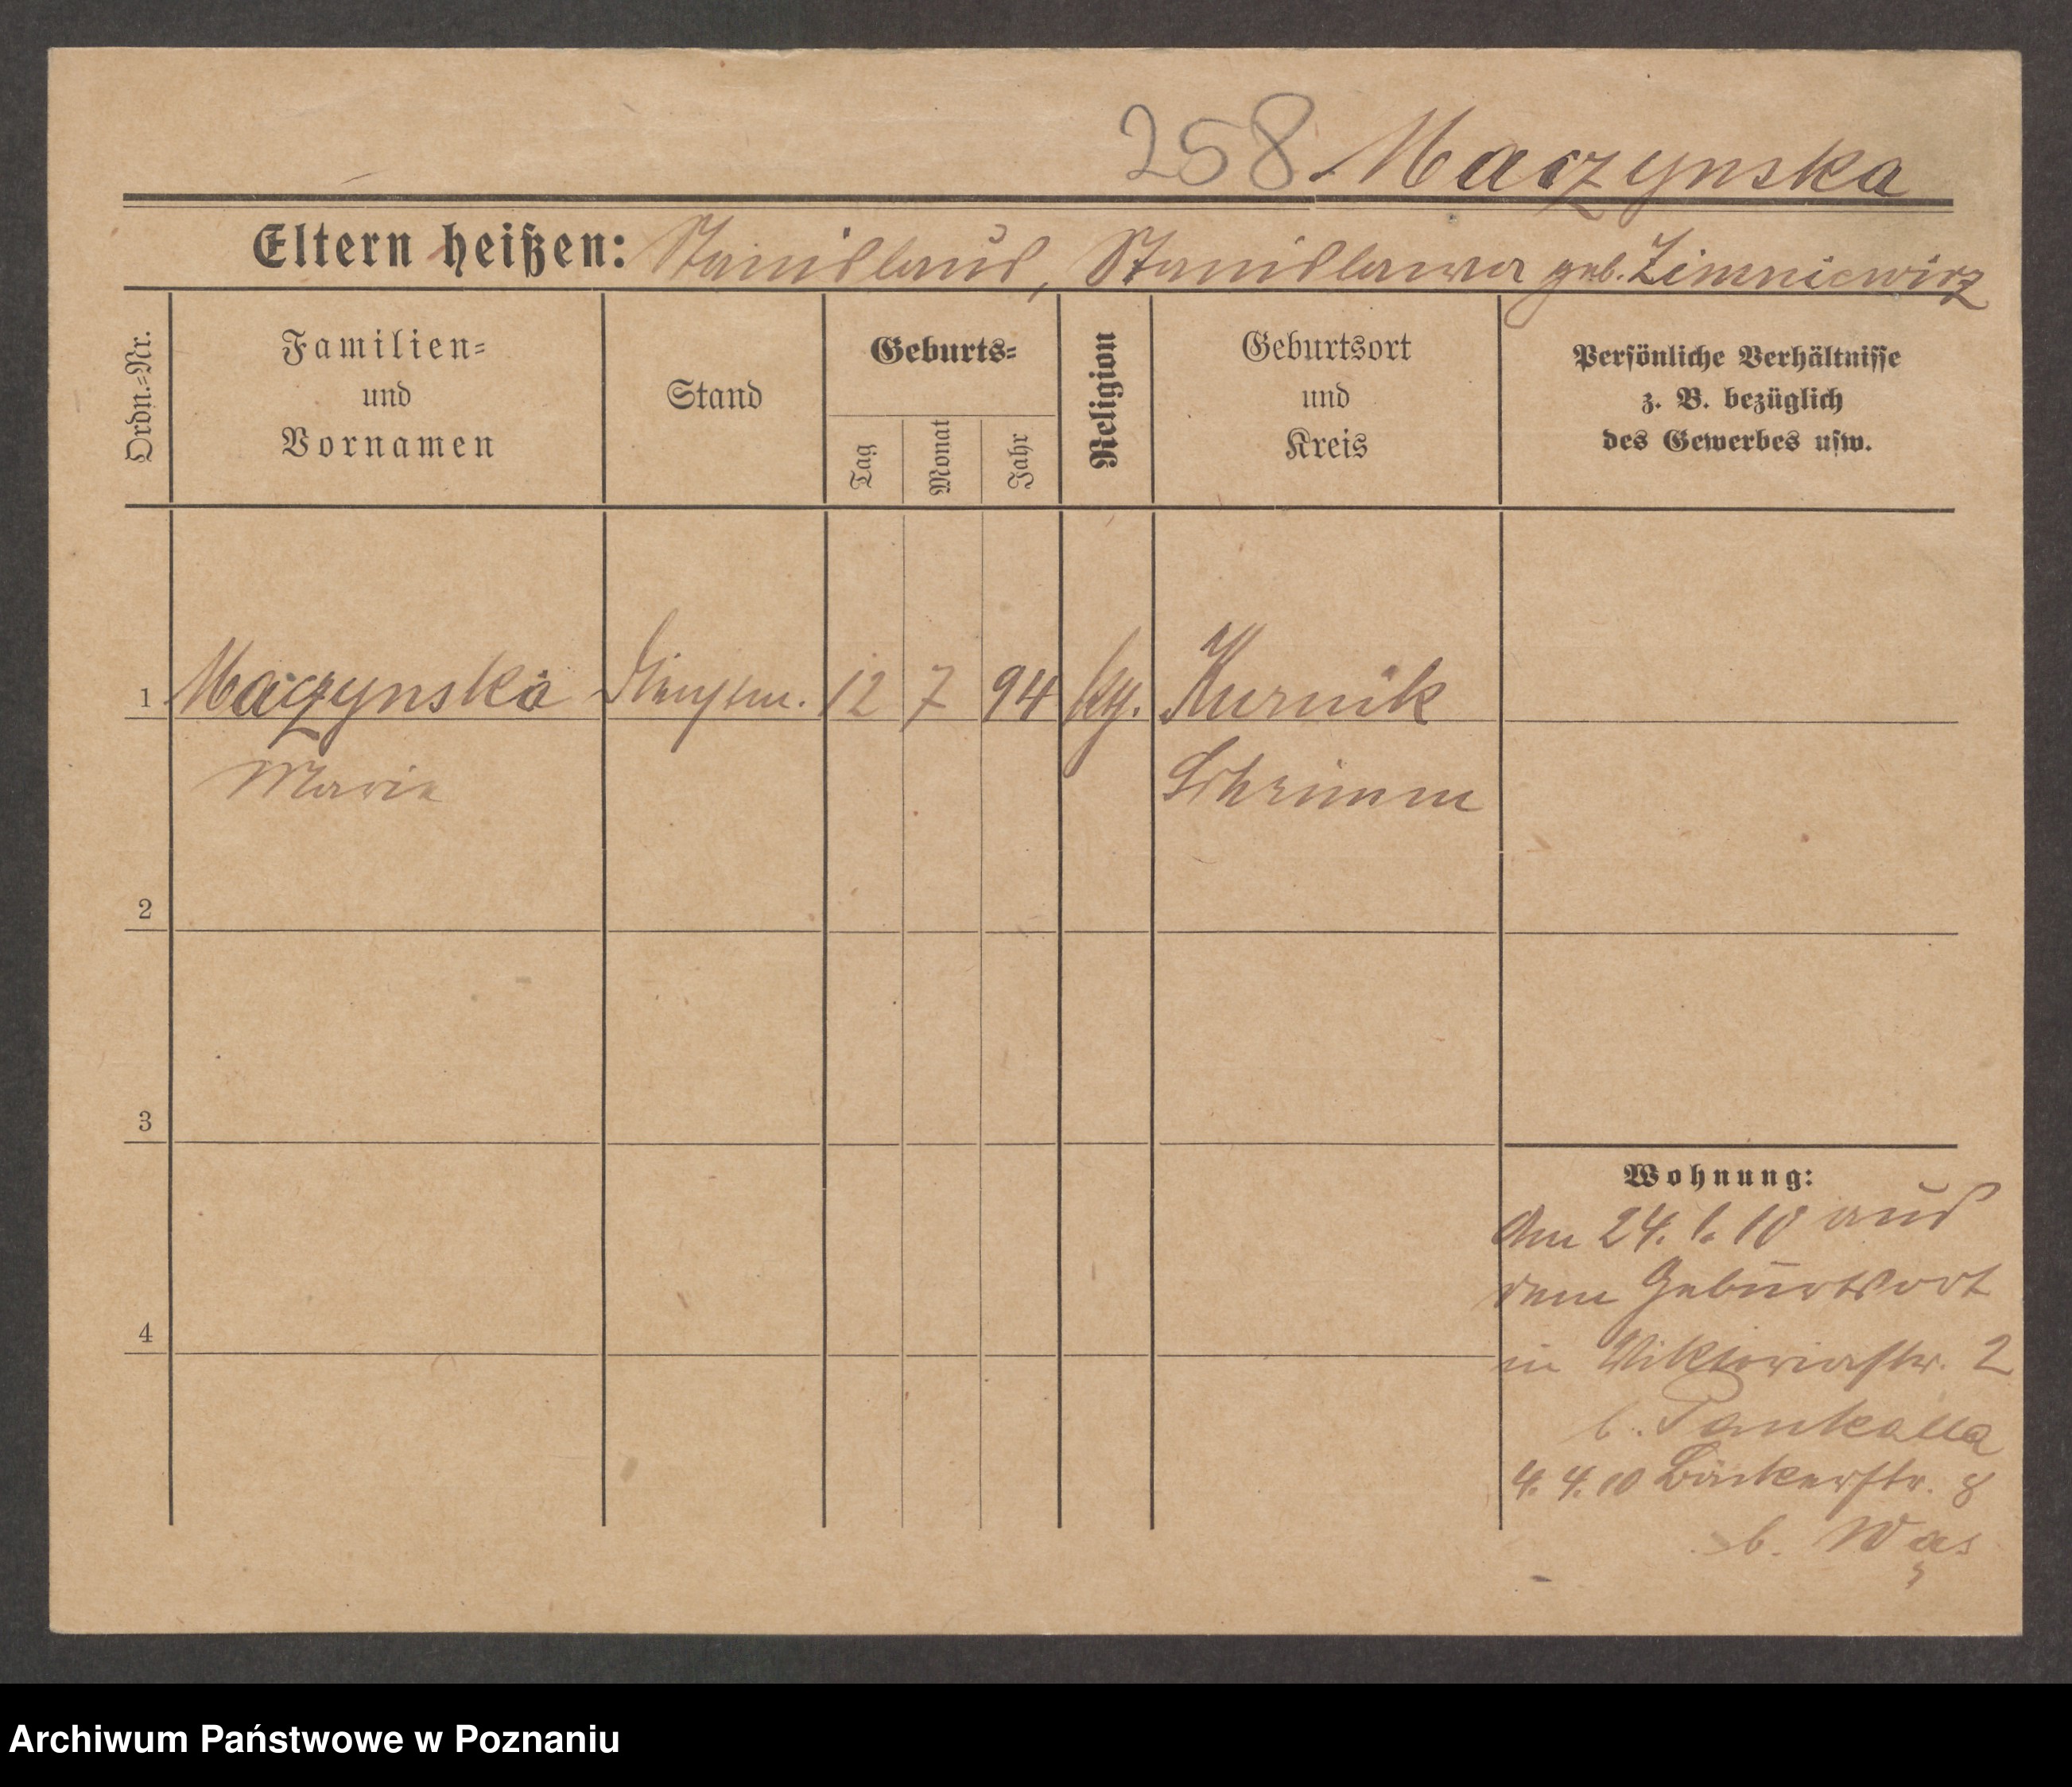 258. Maczynska
Eltern heißen: Stanislaus, Stanislawa geb. Zimniewicz
Ordn.=Nr.
Familien=
und
Vornamen
Stand
Geburts=
Tag
Monat
Jahr
Religion
Geburtsort
und
Kreis
Persönliche Verhältnisse
z. B. bezüglich
des Gewerbes usw.
1 Maczynska 12 7 94 Kurnik
Marie Schrimm
2
3
4
Wohnung:
Am 24. 1. 10 aus
dem Geburtsort
in Viktoriastr. 2
b. Pankalla
4. 4. 10 Bäckerstr. 8
b. Wąs
Archiwum Państwowe w Poznaniu